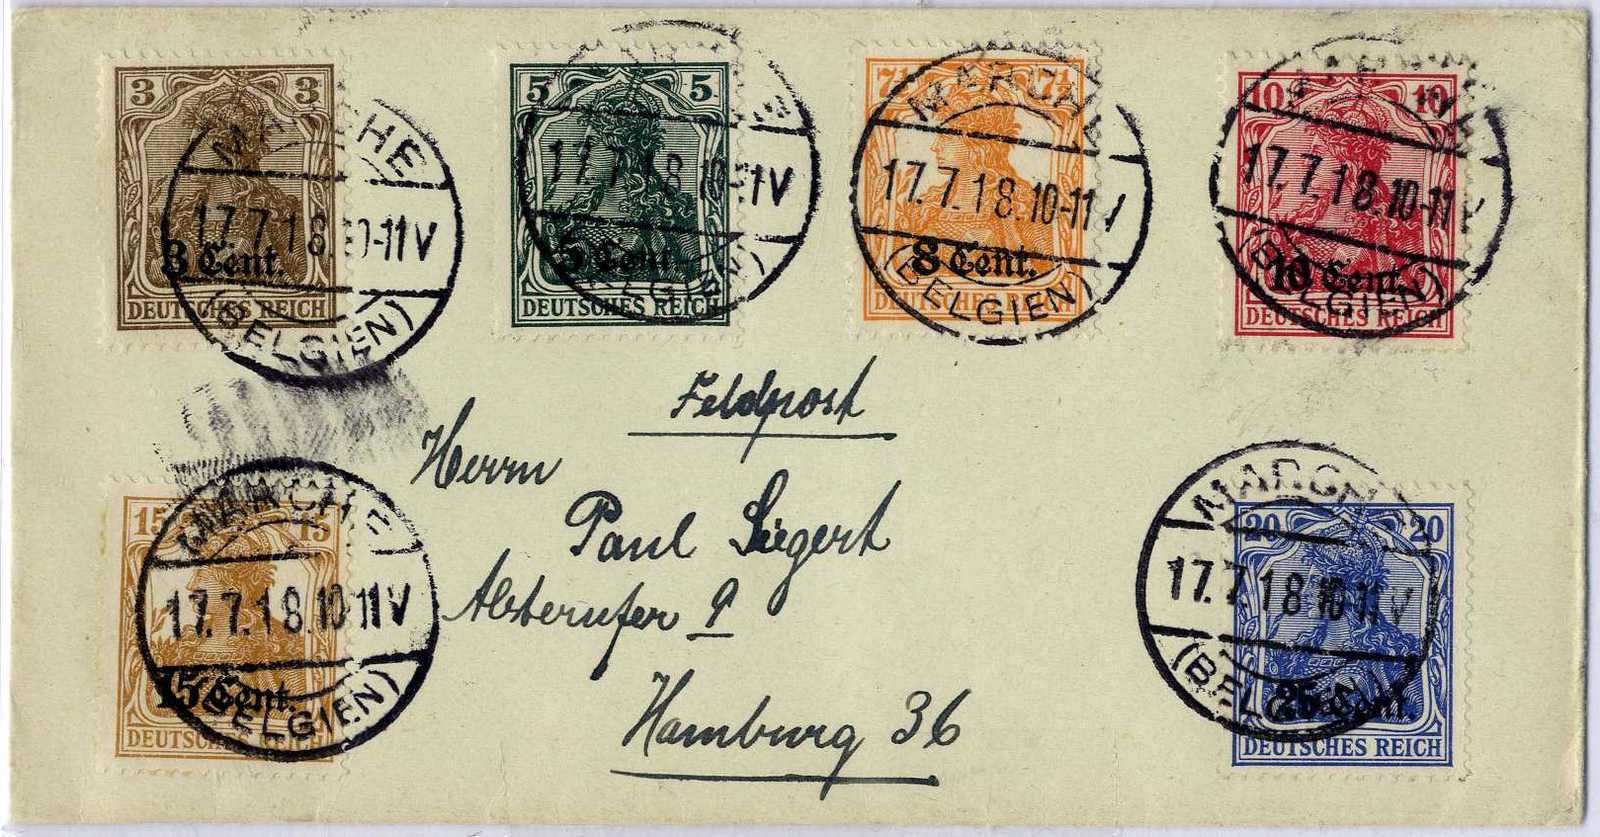 3 3
3 Cent.
DEUTSCHES REICH
MARCHE
17.7.18.10-11V
(BELGIEN)
5 5
5 Cent.
DEUTSCHES REICH
17.7.18.10-11V
(BELGIEN)
7½ 7½
8 Cent.
DEUTSCHES REICH
MARCHE
17.7.18.10-11V
(BELGIEN)
10 10
10 Cent.
DEUTSCHES REICH
MARCHE
17.7.18.10-11V
(BELGIEN)
Feldpost
Herrn
Paul Siegert
Alsterufer 9
Hamburg 36
15 15
15 Cent.
DEUTSCHES REICH
MARCHE
17.7.18.10-11V
(BELGIEN)
20 20
25 Cent.
DEUTSCHES REICH
MARCHE
17.7.18.10-11V
(BELGIEN)